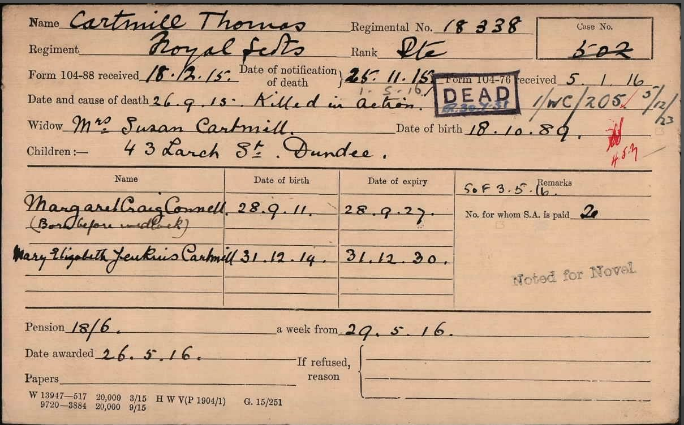 Name Cartmill Thomas Regimental No. 18338 Case No.
Regiment Royal Scots Rank Pte 502
Form 104-88 received 18.12.15. Date of notification of death } 25.11.15 Form 104-76 received 5 1 16
1.5.16 DEAD
Date and cause of death 26.9.15. Killed in action. 1/WC/205 5/12/23
Widow Mrs Susan Cartmill. Date of birth 18.10.89.
Children:— 43 Larch St. Dundee.
Name Date of birth Date of expiry Remarks
S of F 3.5.16.
Margaret Craig Connell 28.9.11. 28.9.27. No. for whom S.A. is paid 2
(Born before wedlock)
Mary Elizabeth Jenkins Cartmill 31.12.14. 31.12.30.
Noted for Novel
Pension 18/6. a week from 29.5.16.
Date awarded 26.5.16. If refused, reason
Papers
W 13947—517 20,000 3/15 H W V(P 1904/1) G. 15/251
9720—3884 20,000 9/15